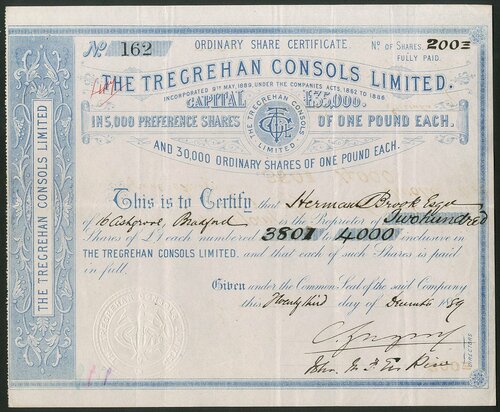 No 162
ORDINARY SHARE CERTIFICATE
No OF SHARES, 200
FULLY PAID.
THE TREGREHAN CONSOLS LIMITED.
INCORPORATED 9TH MAY, 1889, UNDER THE COMPANIES ACTS, 1862 TO 1886.
CAPITAL £35,000.
IN 5,000 PREFERENCE SHARES OF ONE POUND EACH.
THE TREGREHAN CONSOLS LIMITED
AND 30,000 ORDINARY SHARES OF ONE POUND EACH.
This is to Certify that Herman Brook Esqr
of 16 Ashgrove, Bradford is the Proprietor of Two Hundred
Shares of £1 each numbered 3801 to 4000 inclusive in
THE TREGREHAN CONSOLS LIMITED. and that each of such Shares is paid
in full.
Given under the Common Seal of the said Company
this Twenty third day of December 1889
DIRECTORS
THE TREGREHAN CONSOLS LIMITED